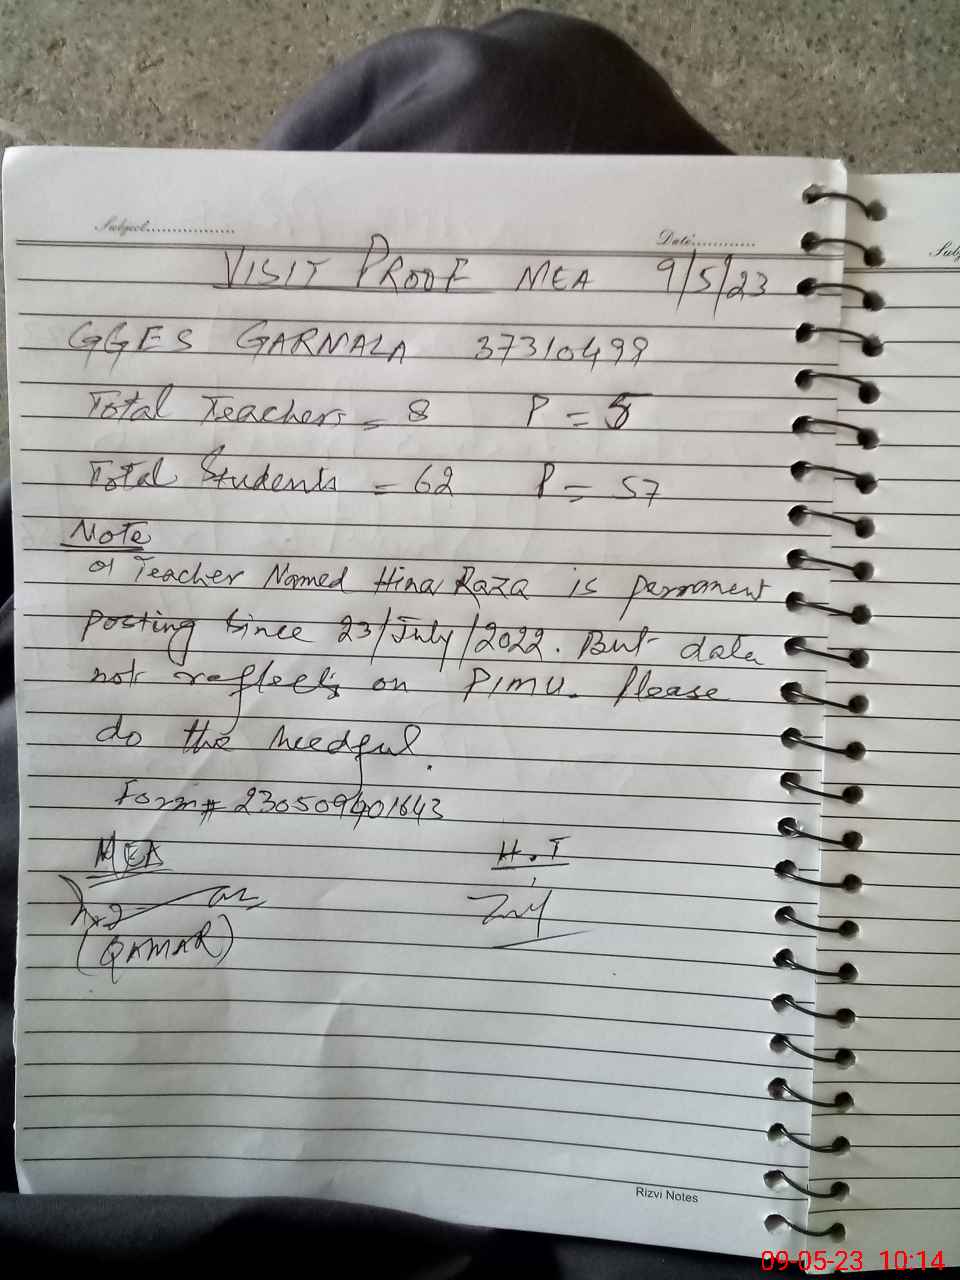 Subject.................
Date............
VISIT PROOF MEA 9/5/23
GGES GARMALA 37310499
Total Teachers = 8 P =
Total Students = 62 P = 57
Note
01 Teacher Named Hina Raza is permanent
posting since 23/July/2022. But data
not reflects on PIMU. Please
do the needful.
Form# 230509401643
MEA
H.T
(QAMAR)
Rizvi Notes
09-05-23 10:14